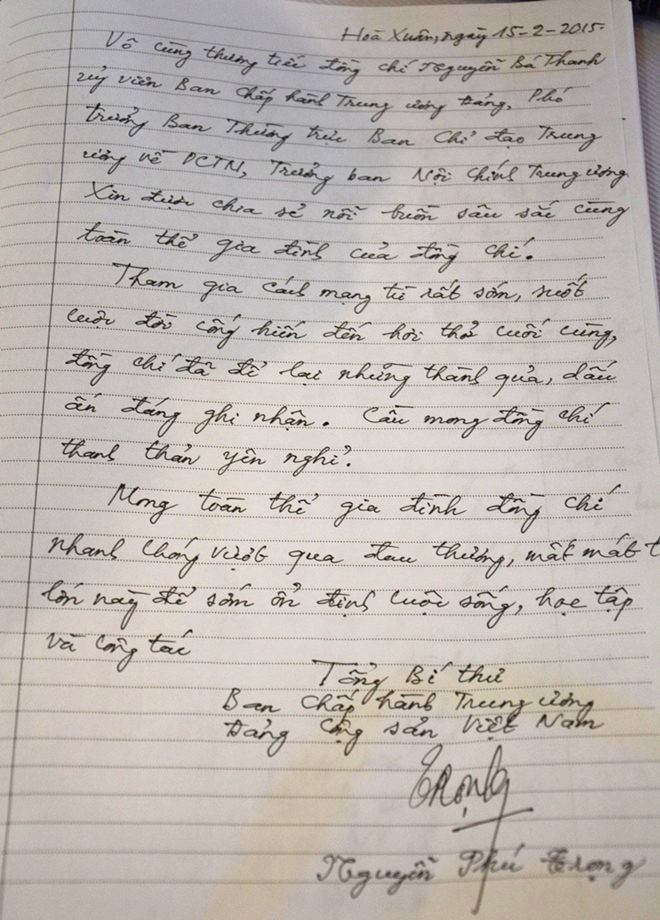 Hoà Xuân, ngày 15-2-2015
Vô cùng thương tiếc đồng chí Nguyễn Bá Thanh
uỷ viên Ban Chấp hành Trung ương Đảng, Phó
trưởng Ban Thường trực Ban Chỉ đạo Trung
ương về PCTN, Trưởng ban Nội Chính Trung ương
Xin được chia sẻ nỗi buồn sâu sắc cùng
toàn thể gia đình của đồng chí.
Tham gia cách mạng từ rất sớm, suốt
cuộc đời cống hiến đến hơi thở cuối cùng,
đồng chí đã để lại những thành quả, dấu
ấn đáng ghi nhận. Cầu mong đồng chí
thanh thản yên nghỉ.
Mong toàn thể gia đình đồng chí
nhanh chóng vượt qua đau thương, mất mát t
lớn này để sớm ổn định cuộc sống, học tập
và công tác
Tổng Bí thư
Ban Chấp hành Trung ương
Đảng Cộng sản Việt Nam
Trọng
Nguyễn Phú Trọng